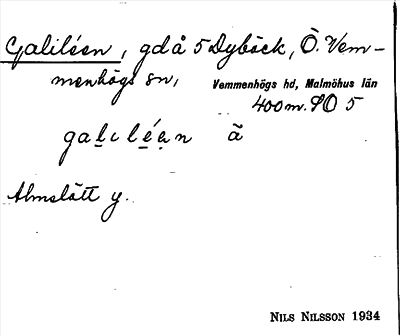 Galiléen, gd å 5 Dybäck, Ö. Vem-
menhögs sn,
Vemmenhögs hd, Malmöhus län
400 m. SO 5
galiléan ã
Almslätt y.
NILS NILSSON 1934